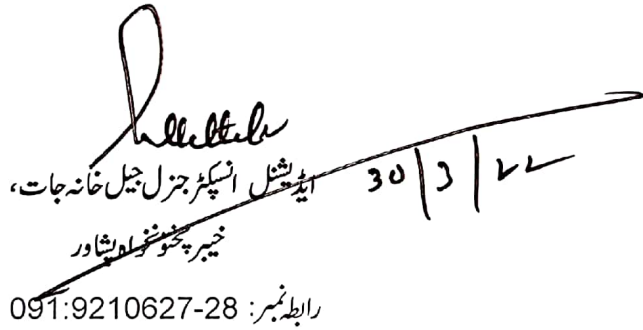 ایڈیشنل انسپکٹر جنرل جیل خانہ جات،
30/3/22
خیبر پختونخواہ پشاور
رابطہ نمبر: 091:9210627-28